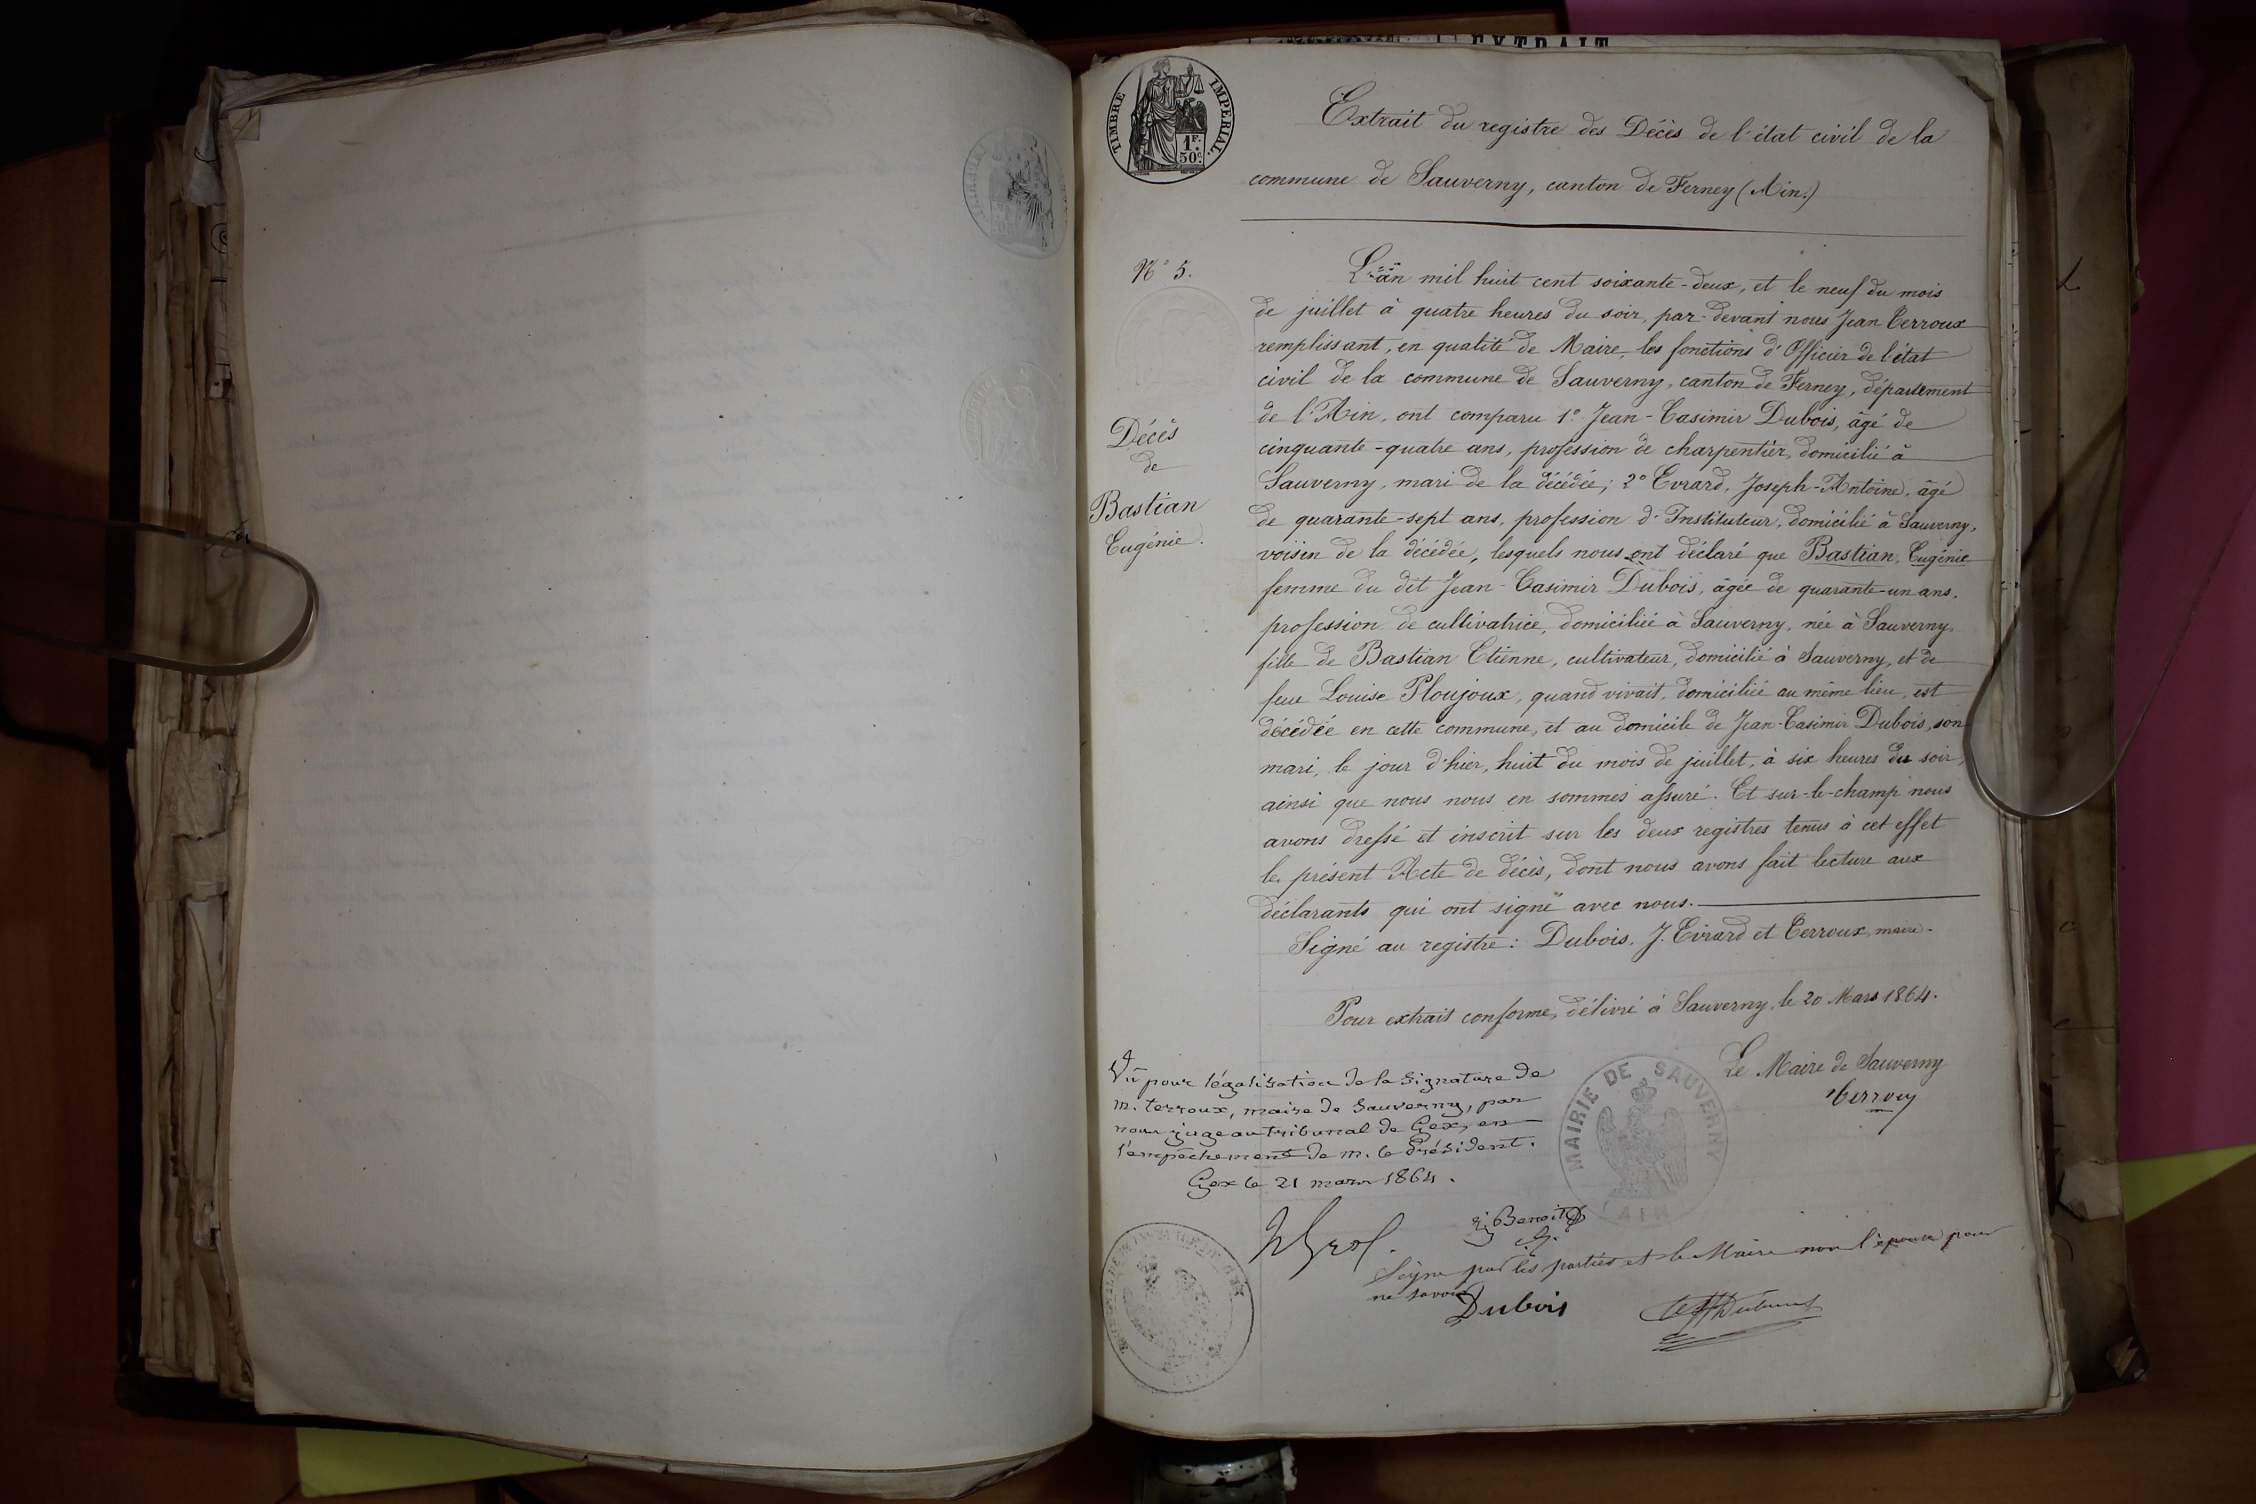 EXTRAIT
TIMBRE IMPERIAL.
1F. 50c.
Extrait du registre des Décès de l'état civil de la
commune de Sauverny, canton de Ferney (Ain.)
N° 5.
Décès
de
Bastian
Eugénie.
L'an mil huit cent soixante-deux, et le neuf du mois
de juillet à quatre heures du soir, par-devant nous Jean Terroux
remplissant, en qualité de Maire, les fonctions d'Officier de l'état
civil de la commune de Sauverny, canton de Ferney, département
de l'Ain, ont comparu 1° Jean-Casimir Dubois, âgé de
cinquante-quatre ans, profession de charpentier, domicilié à
Sauverny, mari de la décédée; 2° Evrard, Joseph-Antoine, âgé
de quarante-sept ans, profession d'Instituteur, domicilié à Sauverny,
voisin de la décédée, lesquels nous ont déclaré que Bastian, Eugénie
femme du dit Jean-Casimir Dubois, âgée de quarante-un ans,
profession de cultivatrice, domiciliée à Sauverny, née à Sauverny,
fille de Bastian Etienne, cultivateur, domicilié à Sauverny, et de
feue Louise Ploujoux, quand vivait, domiciliée au même lieu, est
décédée en cette commune, et au domicile de Jean-Casimir Dubois, son
mari, le jour d'hier, huit du mois de juillet, à six heures du soir,
ainsi que nous nous en sommes assuré. Et sur-le-champ nous
avons dressé et inscrit sur les deux registres tenus à cet effet
le présent Acte de décès, dont nous avons fait lecture aux
déclarants qui ont signé avec nous.
Signé au registre: Dubois, J. Evrard et Terroux, maire.
Pour extrait conforme, délivré à Sauverny, le 20 Mars 1864.
Le Maire de Sauverny
Terroux
MAIRIE DE SAUVERNY
AIN
Vu pour légalisation de la signature de
m. terroux, maire de Sauverny, par
nous juge au tribunal de Gex, en
l'empêchement de m. le Président.
Gex le 21 mars 1864.
Benoit
Signé par les parties et le Maire non l'épouse pour
ne savoir
Dubois